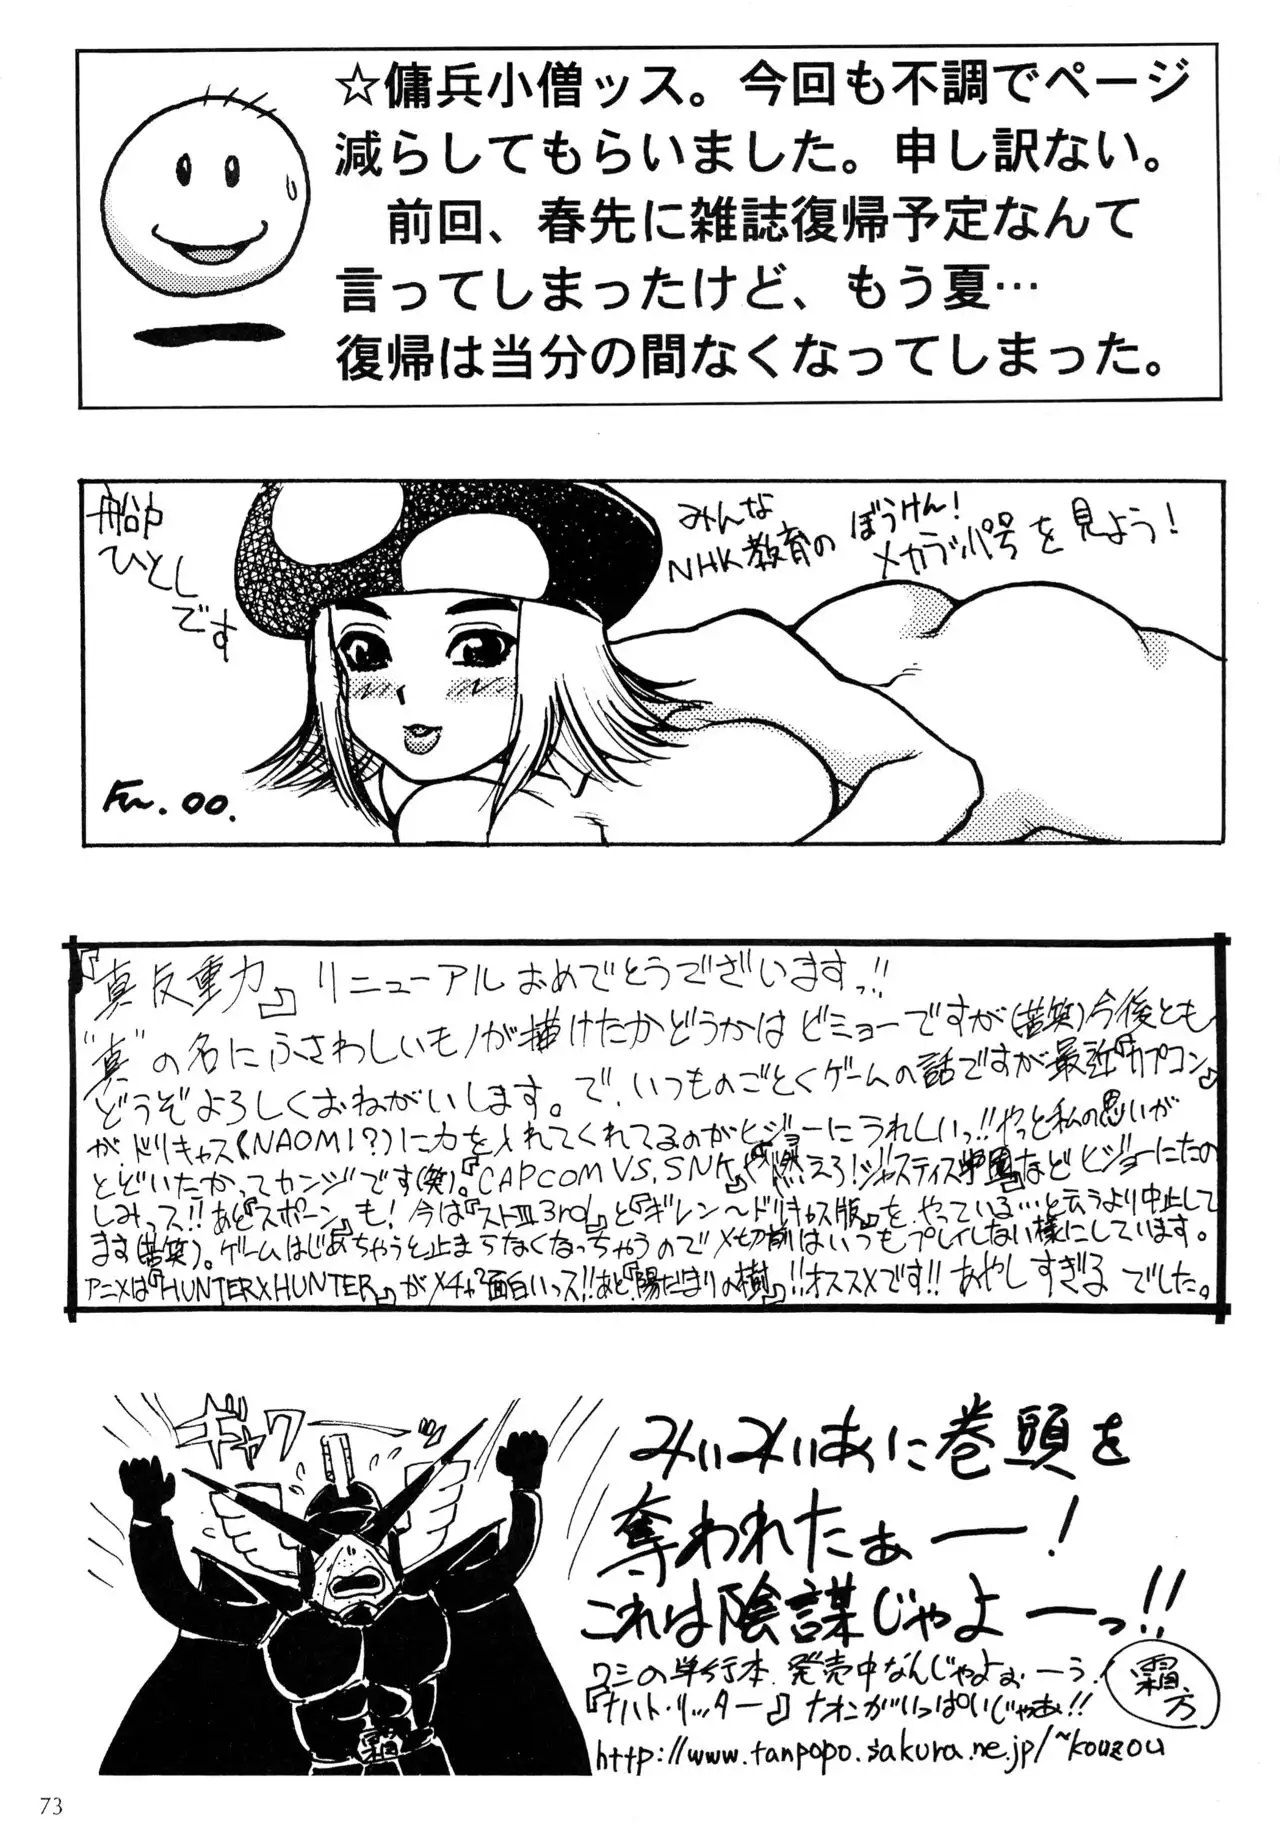 ☆傭兵小僧ッス。今回も不調でページ
減らしてもらいました。申し訳ない。
前回、春先に雑誌復帰予定なんて
言ってしまったけど、もう夏…
復帰は当分の間なくなってしまった。
船中
ひとし
です
みんな
NHK教育の
ぼうけん!
メカラッパ号を見よう!
Fu. 00.
『真反重力』リニューアルおめでとうでございますっ!!
"真"の名にふさわしいモノが描けたかどうかはビミョーですが(苦笑)今後とも
どうぞよろしくおねがいします。で、いつものごとくゲームの話ですが最近『カプコン』
がドリキャス(NAOMI?)に力を入れてくれてるのがヒジョーにうれしいっ!!やっと私の思いが
とどいたかってカンジです(笑)。『CAPCOM VS. SNK』や『燃えろ!ジャスティス学園』などヒジョーにたの
しみっス!!あと『スポーン』も!今は『ストIII 3rd』と『ギレン〜ドリキャス版』をやっている…と云うより中止して
ます(苦笑)。ゲームはじめちゃうと止まらなくなっちゃうので〆切前はいつもプレイしない様にしています。
アニメは『HUNTER×HUNTER』がメチャ面白いっス!!あと『陽だまりの樹』!!オススメです!! あやしすぎるでした。
ギャワーッ
みぃみぃあに巻頭を
奪われたぁー!
これは陰謀じゃよーっ!!
ワシの単行本、発売中なんじゃよぉーう!
『ナハト・リッター』ナオンがいっぱいじゃぁ!!
霜方
http://www.tanpopo.sakura.ne.jp/~kouzou
霜
73